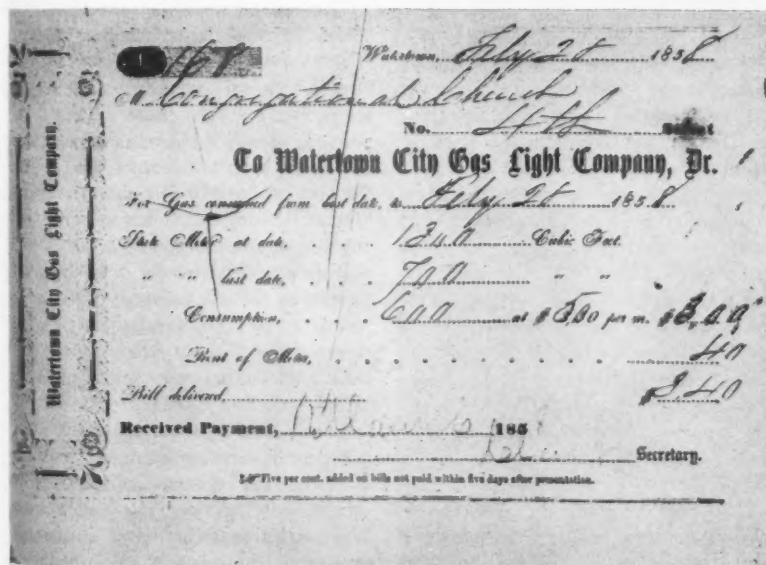 Watertown City Gas Light Company.
168
Watertown, Feby 28 1858
M Congregational Church
No. 4th Street
To Watertown City Gas Light Company, Dr.
For Gas consumed from last date, to Feby 28 1858
State Meter at date, . . . 1340 Cubic Feet.
" " last date, . . . 740 " "
Consumption, . . . 600 at $5.00 per m. $3.00
Rent of Meter, . . . . . . . 40
Bill delivered, $3.40
Received Payment, 185
Secretary.
Five per cent. added on bills not paid within five days after presentation.